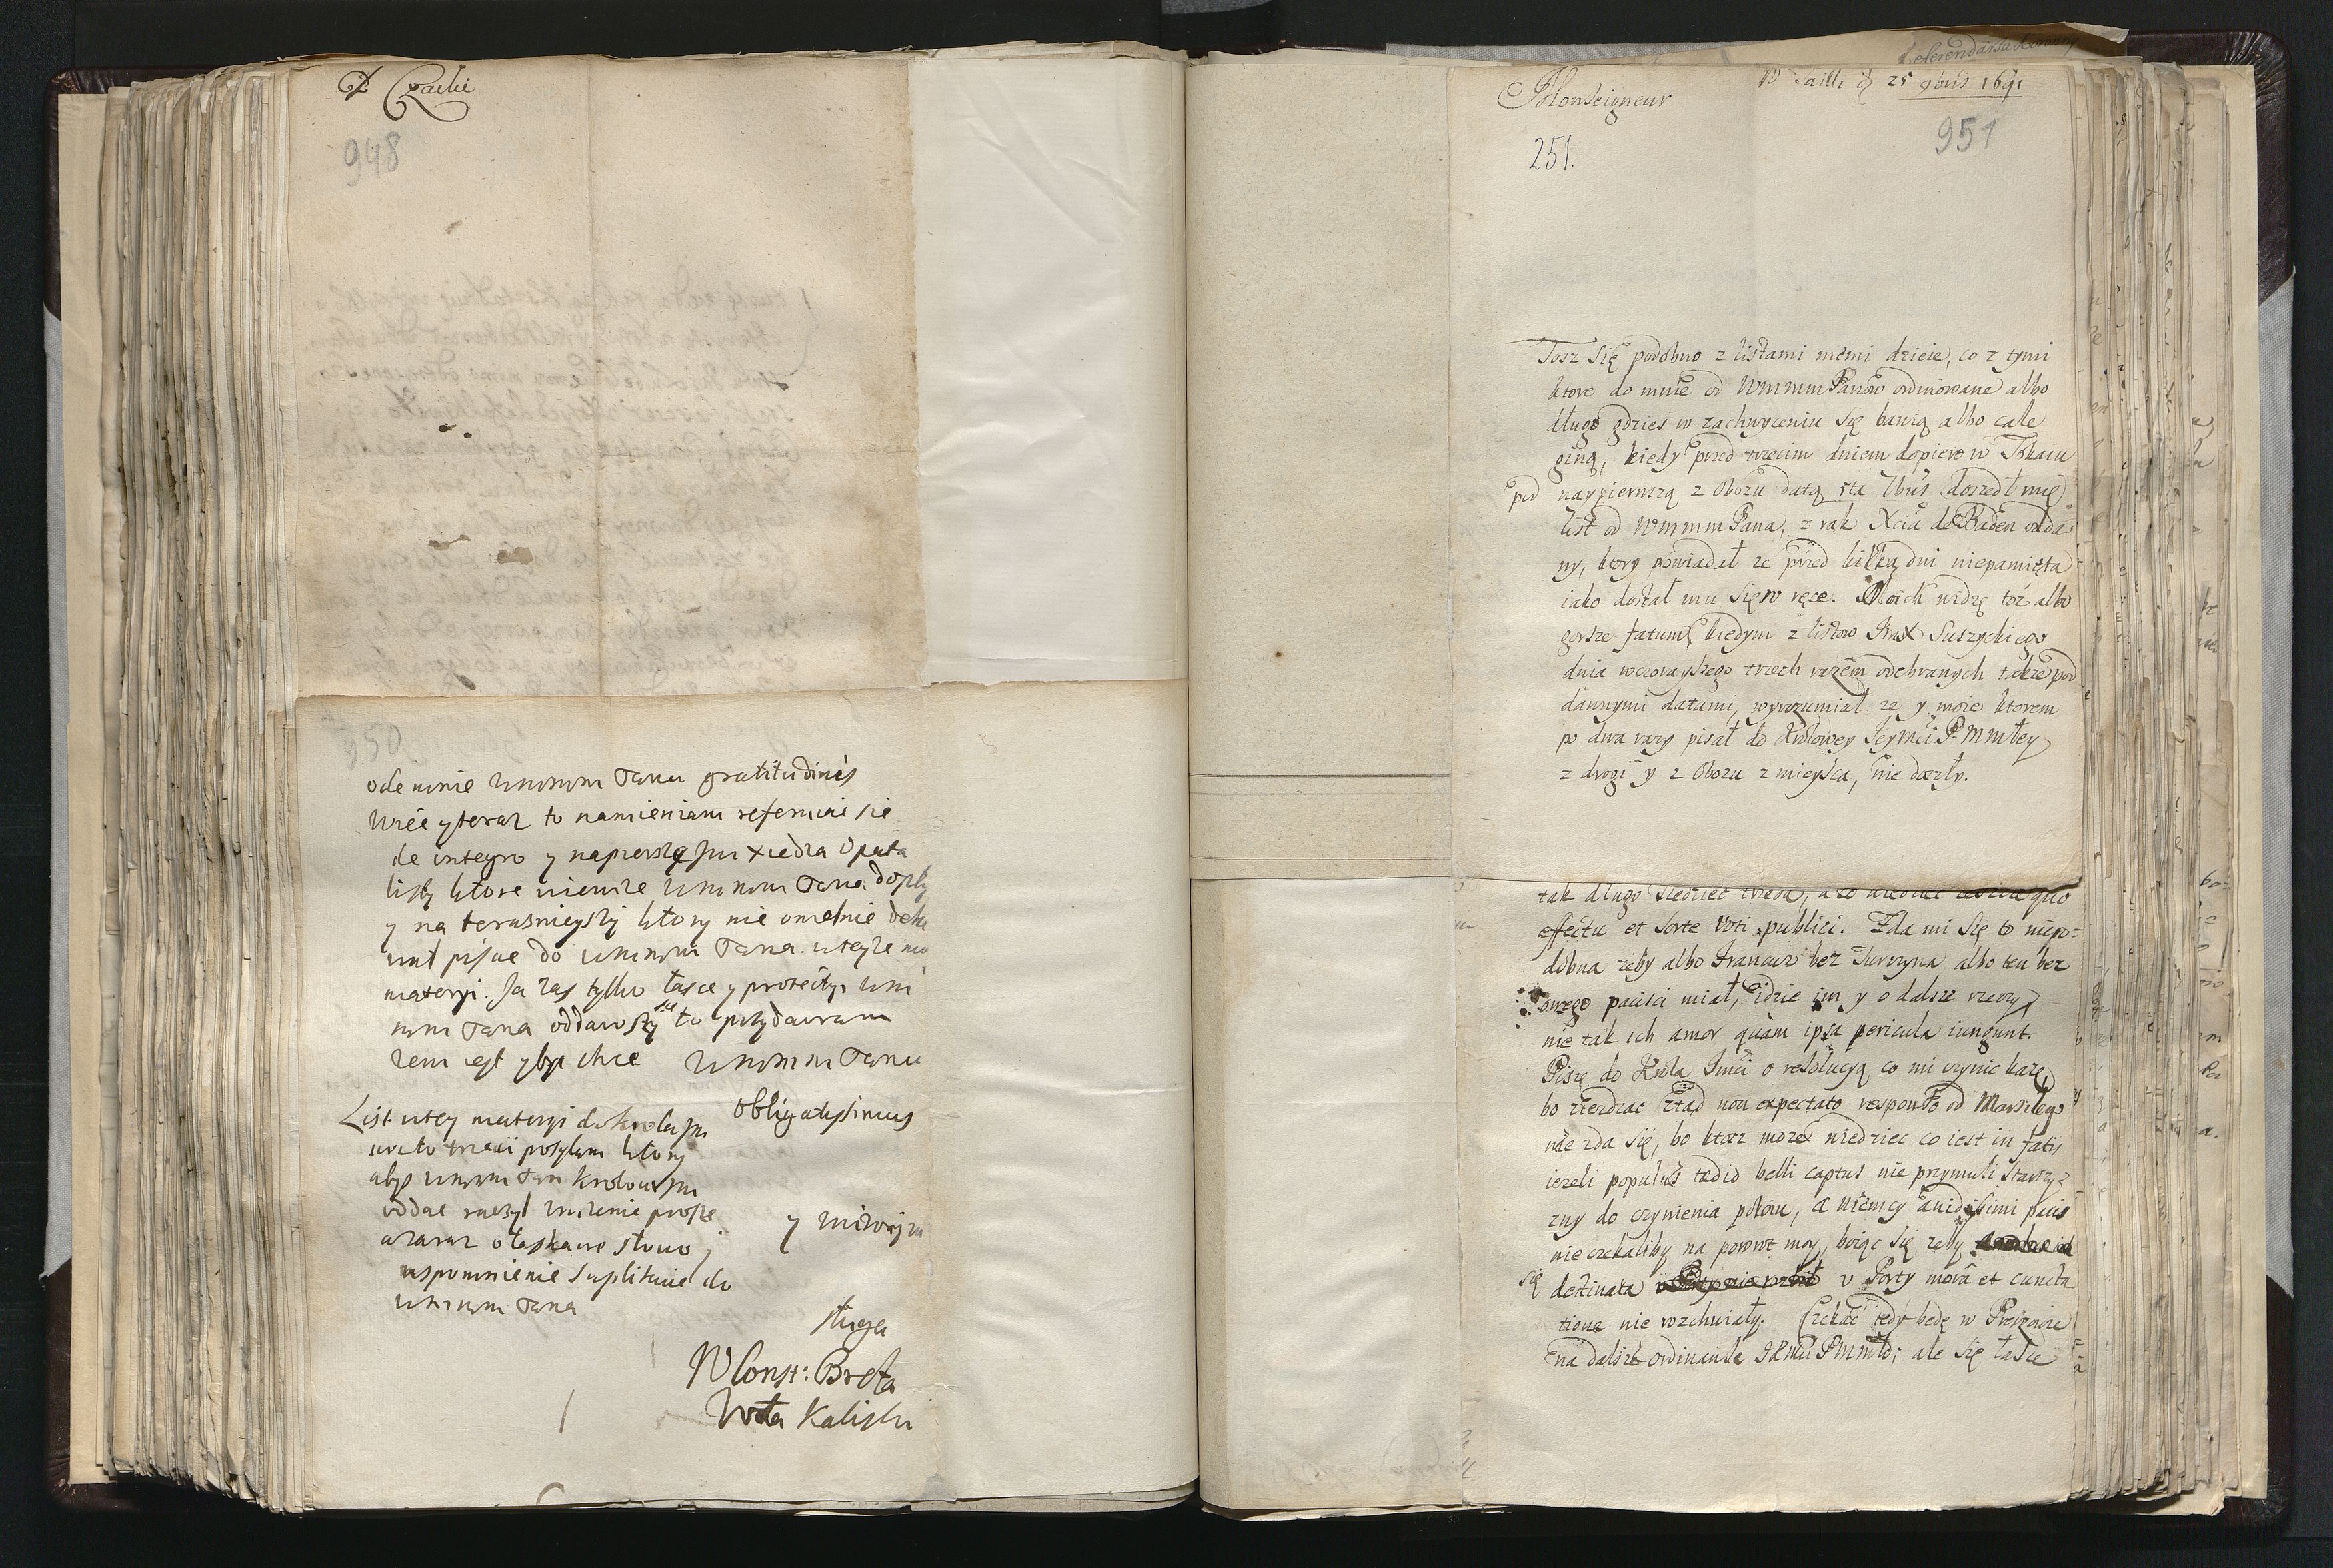 948
950
ode mnie Wmmm Pana gratitudinis
Więc y teraz to namieniam referuiąc się
de integro y napierwszą Jm Xiedza Opata
listy ktore wiem ze Wmmm Pana
y na teraznieyszy ktory nie omelnie
pisze do Wmmm Pana w teyze
materyi. Ja zas tylko łasce y protectyi Wm
mm Pana oddawszy się to przydawam
zem iest y byc chce Wmmm Panu
obligatissimus
List w tey materyi do Krola Jm
posyłam ktory
abys Wmmm Pan Krolowi Jm
oddac raczył unizenie prosze
a zaraz o łaskawe słowo j
wspomnienie suplikuie do
Wmmm Pana
y
sługa
W Const: Breza
Wda Kaliski
Monseigneur
25 9bris 1691
251.
951
Tosz się podobno z listami memi dzieie, co z tymi
ktore do mnie od Wmmm Panow ordinowane albo
długo gdzies w zachwyceniu się bawią albo cale
giną, kiedy przed trzecim dniem dopiero w Tokaiu
pod naypierwszą z Obozu datą 5ta 7bris doszedł mię
list od Wmmm Pana, z rąk Xcia de Baden odda-
ny, ktory powiadał ze przed kilką dni niepamięta
iako dostał mu się w ręce. Moich widzę toż albo
gorsze fatum, kiedym z listow Jmx Suszyckiego
dnia wczorayszego trzech razem odebranych takze pod
dawnymi datami, wyrozumiał ze y moie ktorem
po dwa razy pisał do Krolowey Jeymci P. Mmłey
z drogi y z Obozu z mieysca, nie doszły.
tak długo siedziec
effectu et sorte voti publici. Zda mi się to niepo-
dobna zeby albo Francuz bez Turczyna albo ten bez
owego pacisci miał, idzie im y o dalsze rzeczy,
nie tak ich amor quàm ipsa pericula iungunt.
Piszę do Krola Jmci o resolucyą co mi czynic każe,
bo ziezdzac ztąd non expectato responso od Marsilego
nie zda się, bo ktoz może wiedziec co iest in fatis
iezeli populus tædio belli captus nie przymusi starszy-
zny do czynienia pokoiu, a Niemcy avidissimi pacis
nie czekaliby na powrot moy, boiąc się zeby
się destinata v Porty morâ et cuncta
tione nie rozchwiały. Czekać tedy będę w
na dalsze ordinanse JKMci PMmło; ale się łasce